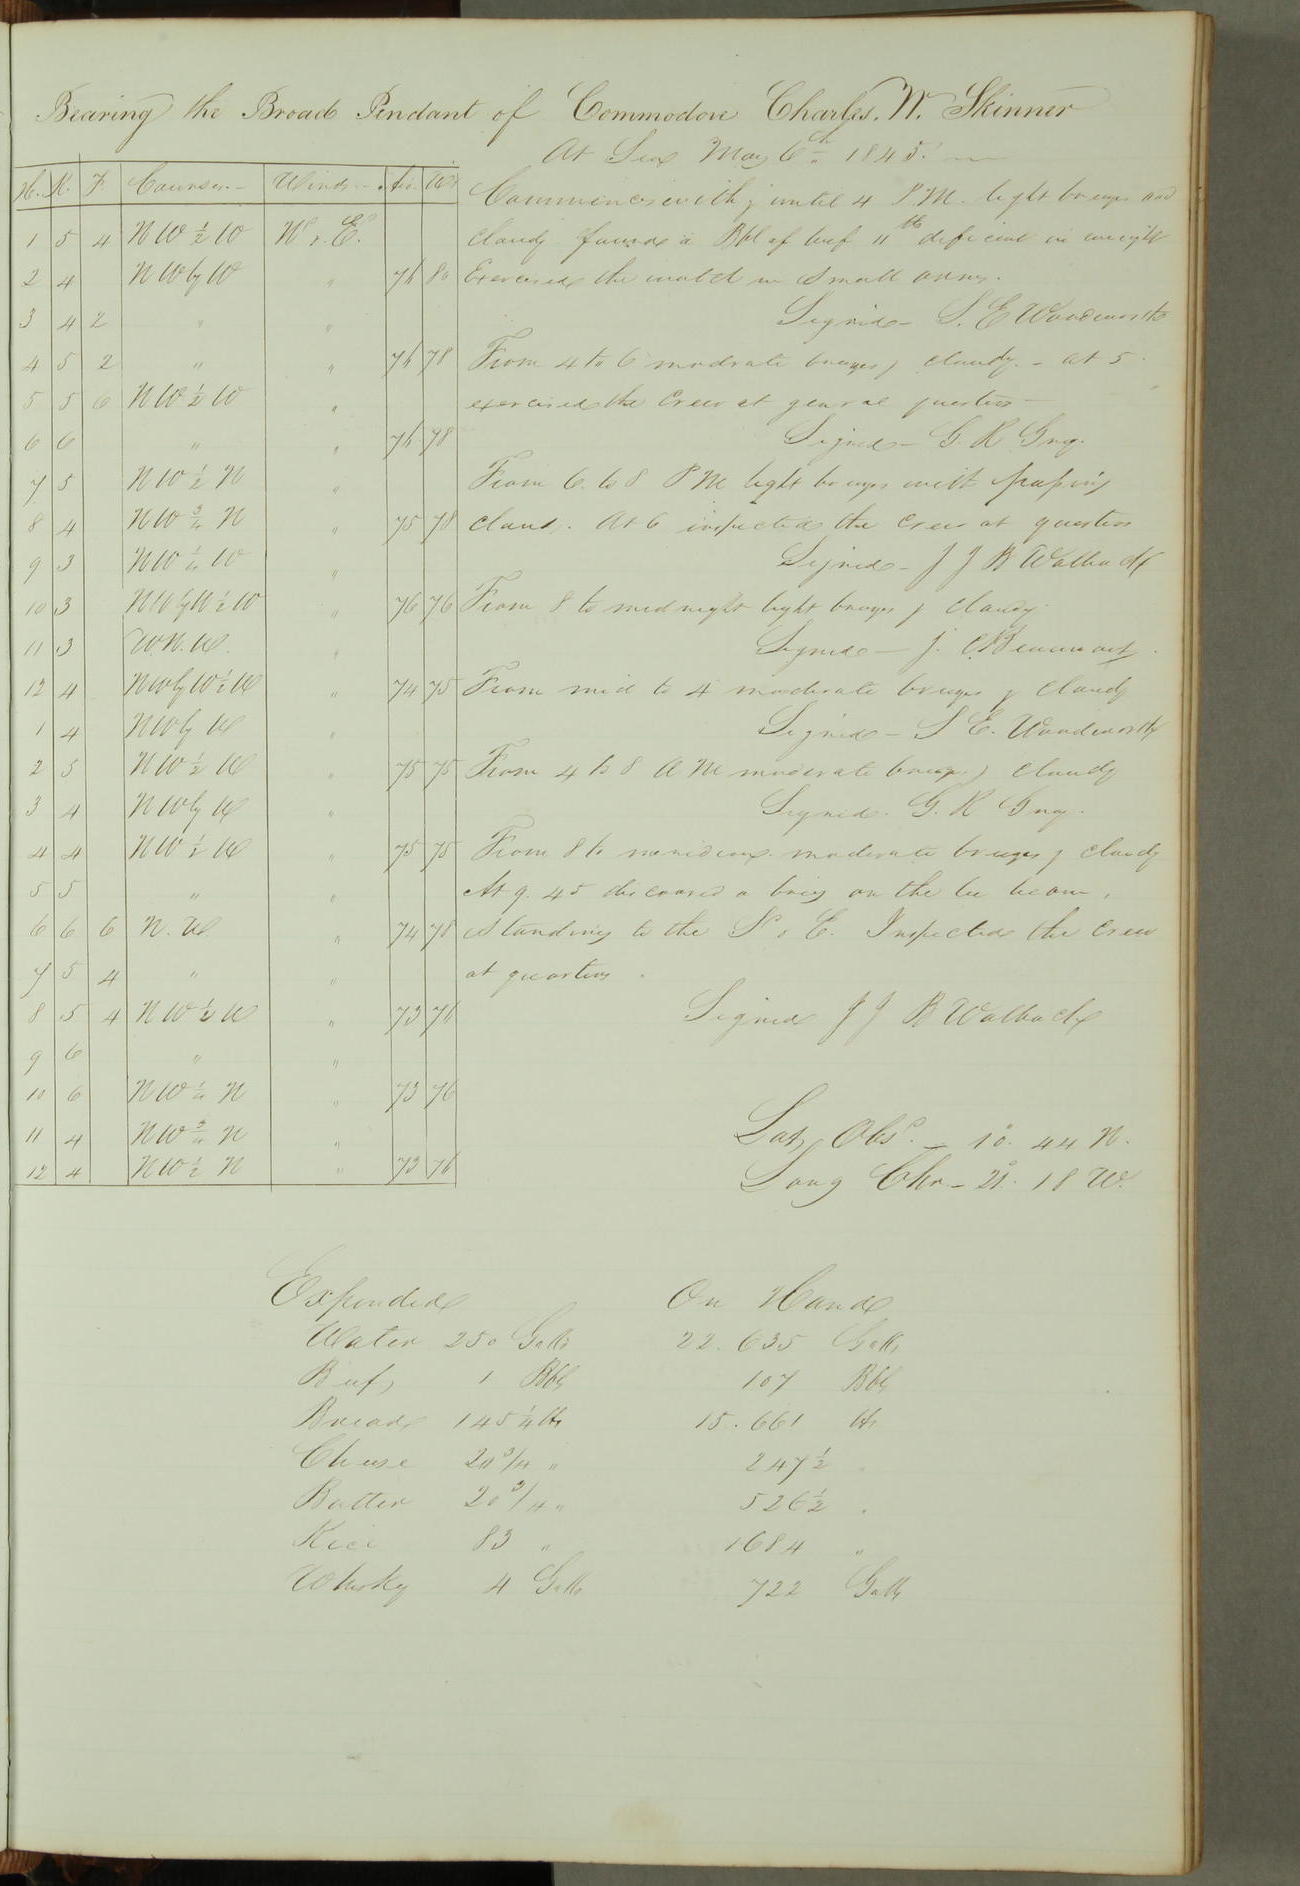 Bearing the Broad Pendant of Commodore Charles. W. Skinner
At Sea May 6th 1845.
H. K. F. Courses Winds Air Wr
1 5 4 NW ½ W N & E.
2 4 NW by W " 76 80
3 4 2 " "
4 5 2 " " 76 78
5 5 6 NW ½ W "
6 6 " " 76 78
7 5 NW ½ N "
8 4 NW ¾ N " 75 78
9 3 NW ¼ W "
10 3 NW by W ½ W " 76 76
11 3 W N. W. "
12 4 NW by W ½ W " 74 75
1 4 NW by W "
2 5 NW ½ W " 75 75
3 4 NW by W "
4 4 NW ½ W " 75 75
5 5 " "
6 6 6 N. W " 74 78
7 5 4 " "
8 5 4 NW ½ W " 73 76
9 6 " "
10 6 NW ¼ N " 73 76
11 4 NW ¾ N "
12 4 NW ½ N " 73 76
Commences with & until 4 P.M. light breezes and
cloudy found a Bbl of beef 11 lbs deficient in weight
Exercised the watch in small arms.
Signed S. E Woodworth
From 4 to 6 moderate breezes & cloudy. - at 5
exercised the Crew at general quarters
Signed G. R Gray.
From 6 to 8 P M light breezes with passing
clouds. At 6 inspected the Crew at quarters
Signed J J B Walbach
From 8 to midnight light breezes & cloudy.
Signed J. C Beaumont.
From mid to 4 moderate breezes & cloudy
Signed S E. Woodworth
From 4 to 8 A M moderate breezes & cloudy
Signed. G. R Gray.
From 8 to meridian moderate breezes & cloudy
At 9. 45 discovered a brig on the lee beam,
Standing to the S & E. Inspected the Crew
at quarters.
Signed J J B Walbach
Lat. Obsd. 1°. 44 N.
Long Chr 21°. 18 W.
Expended On Hand
Water 250 Galls 22.635 Galls
Beef 1 Bbl 107 Bbls
Bread 145 ¼ lbs 15.661 lbs
Cheese 20 3/4 " 247 ½ "
Butter 20 3/4 " 526 ½ "
Rice 83 " 1684 "
Whisky 4 Galls 722 Galls